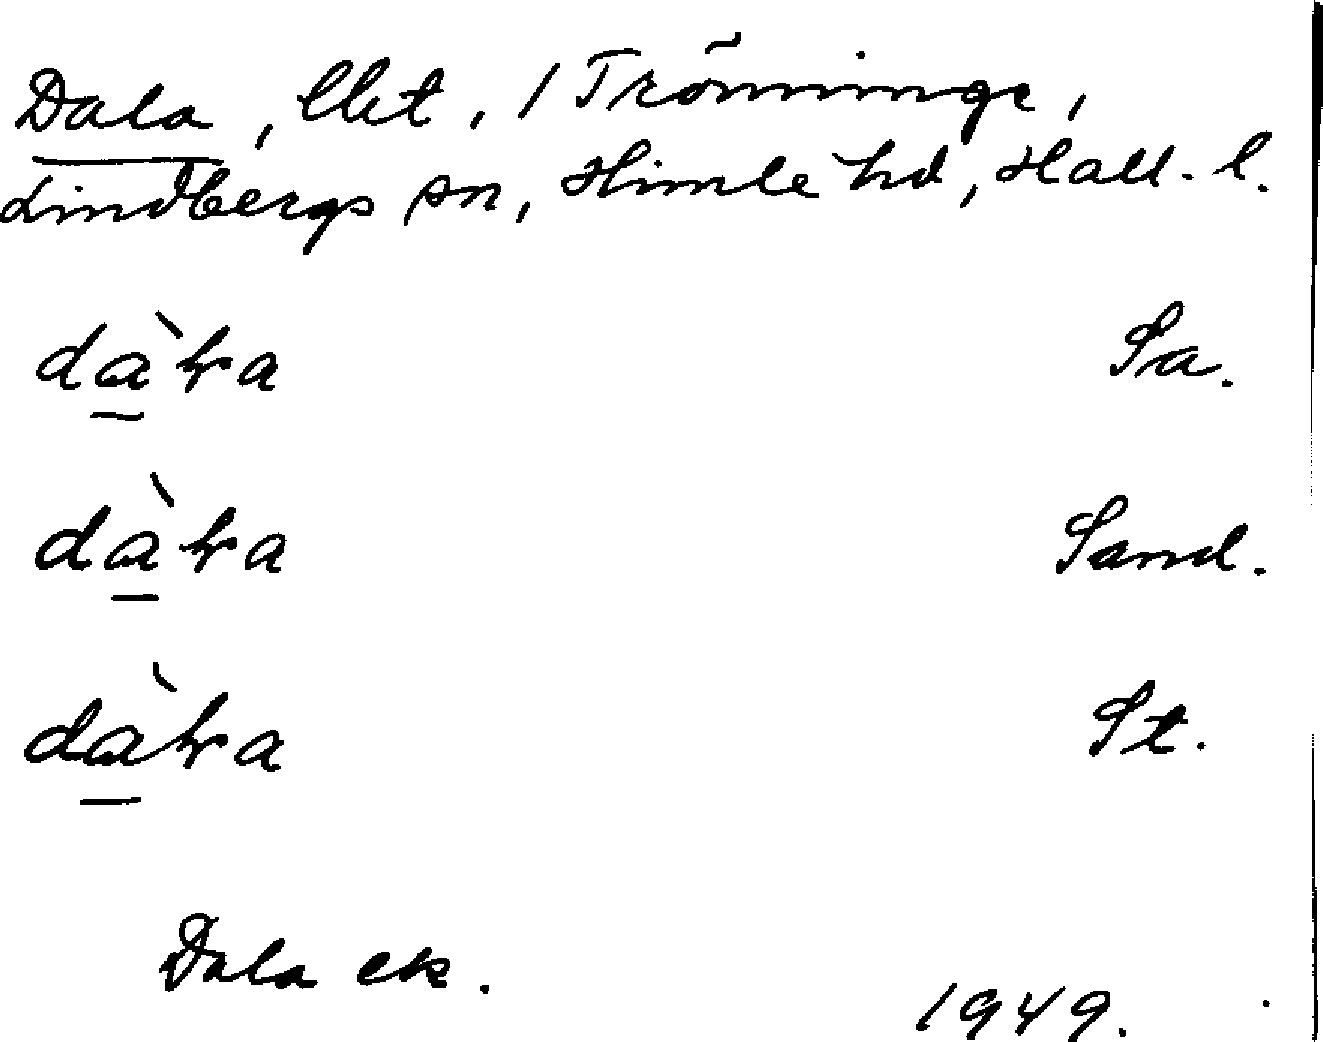 Dala, lht, 1 Trönninge,
Lindbergs sn, Himle hd, Hall. l.
dàɫa Sa.
dàɫa Sand.
dàɫa St.
Dala ek.
1949.